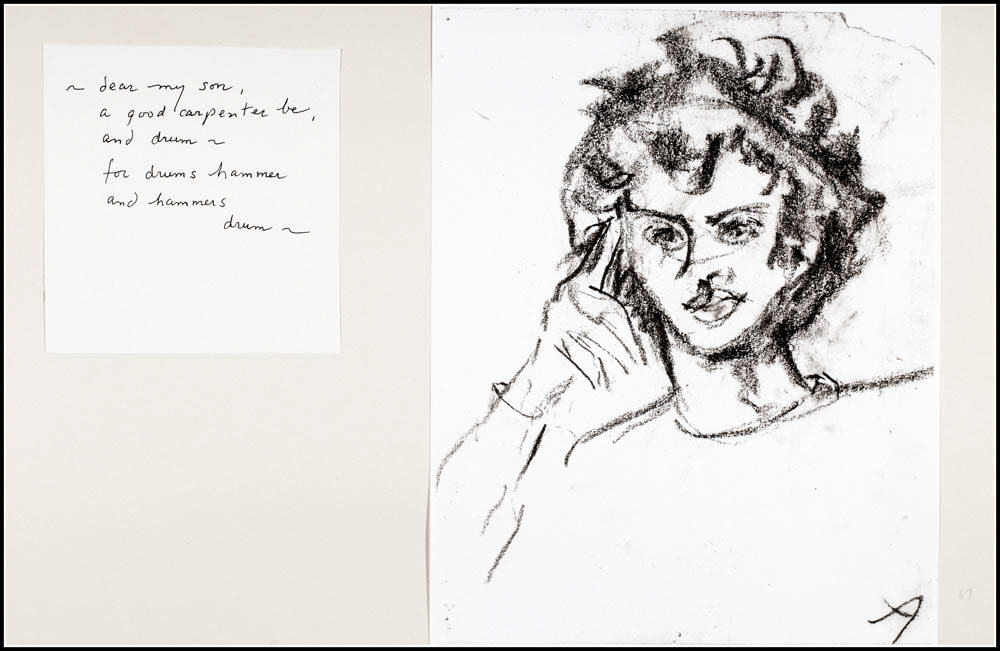 ~ dear my son,
a good carpenter be,
and drum ~
for drums hammer
and hammers
drum ~
A
67